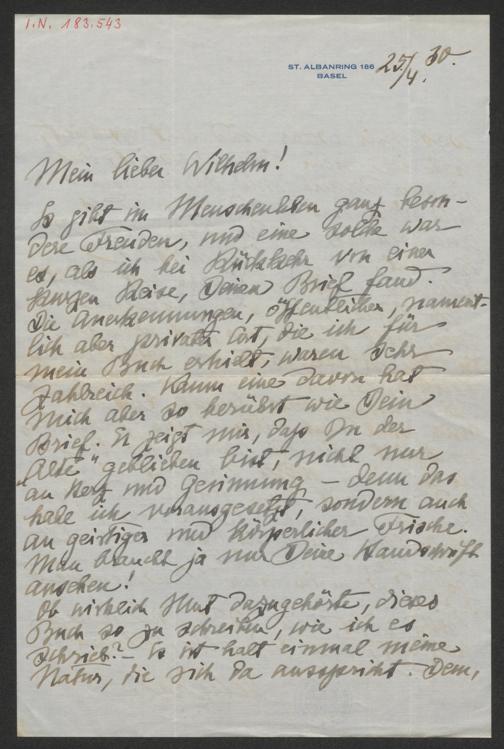 I.N. 183.543
ST. ALBANRING 186
BASEL
25./4. 30.
Mein lieber Wilhelm!
Es gibt im Menschenleben ganz beson-
dere Freuden, und eine solche war
es, als ich bei Rückkehr von einer
kurzen Reise, Deinen Brief fand.
Die Anerkennungen, öffentlicher, nament-
lich aber privater Art, die ich für
mein Buch erhielt, waren sehr
zahlreich. Kaum eine davon hat
mich aber so berührt wie Dein
Brief. Er zeigt mir, dass Du der
"Alte" geblieben bist, nicht nur
an Herz und Gesinnung – denn das
habe ich vorausgesetzt, sondern auch
an geistiger und körperlicher Frische.
Man braucht ja nur Deine Handschrift
ansehen!
Ob wirklich Mut dazugehörte, dieses
Buch so zu schreiben, wie ich es
schrieb? – Es ist halt einmal meine
Natur, die sich da ausspricht. Dem,